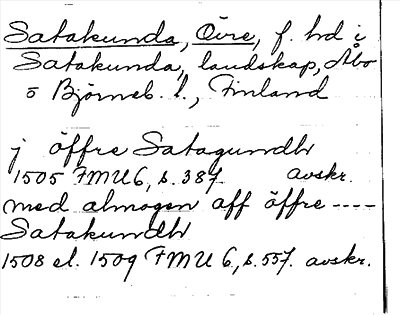 Satakunda, Övre, f. hd i
Satakunda, landskap, Åbo
o Björneb. l., Finland
j öffre Satagundh
1505 FMU 6, s. 387. avskr.
med almogen aff öffre ----
Satakundh
1508 el. 1509 FMU 6, s. 557. avskr.